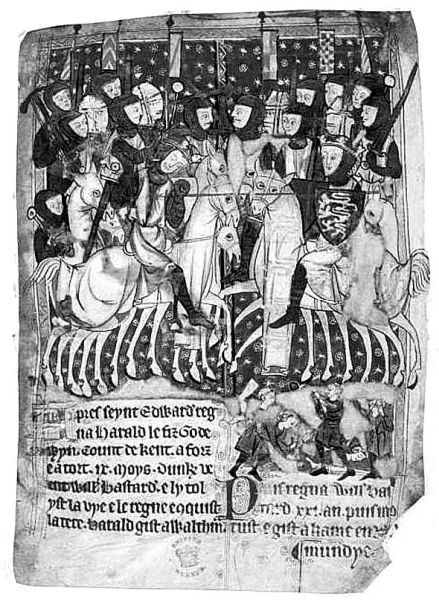 pres seynt Edward reg
na Harald le fiz Gode
wyn. Count de kent. a forz
e a tort. ix. moys. Dunke ve
ent Will Bastard. e ly tol
yst la vye e le regne conquist
la tere. Harald gist a Waltham
regna Will Bas
tard. xxi. an. puis mo
rust e gist a kame en
mundye